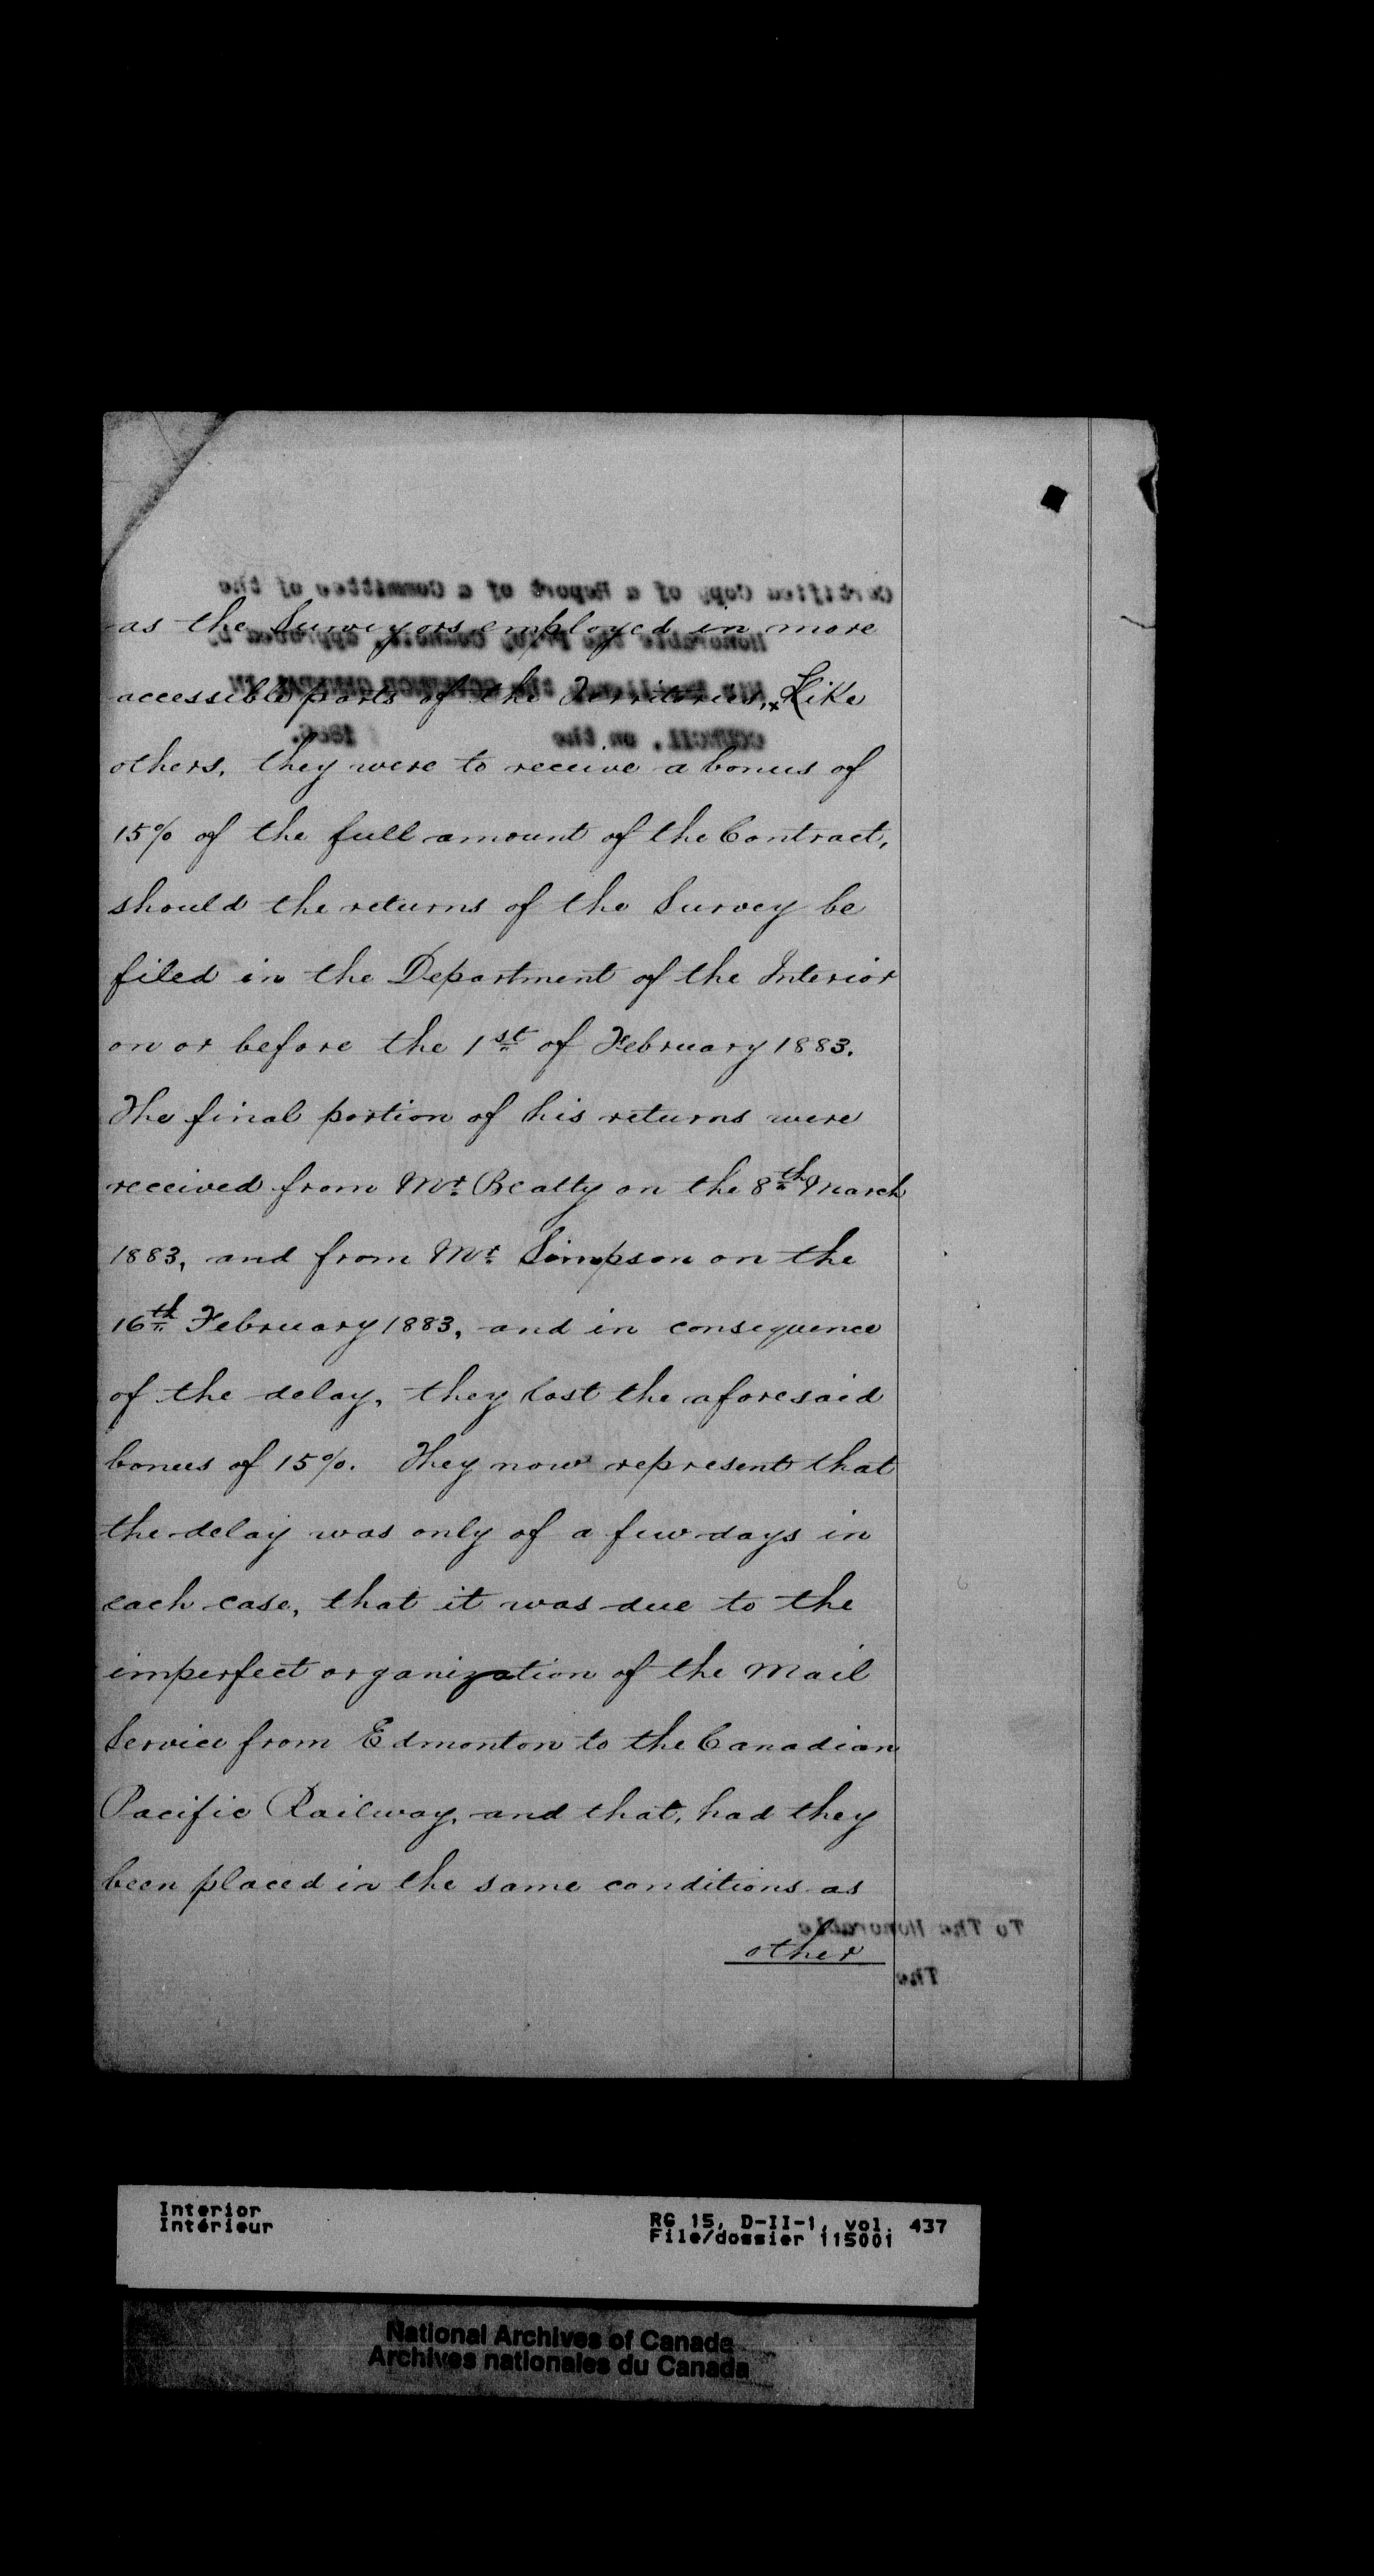 as the Surveyors employed in more
accessible parts of the Territories. Like
others, they were to receive a bonus of
15% of the full amount of the Contract,
should the returns of the Survey be
filed in the Department of the Interior
on or before the 1st of February 1883.
The final portion of his returns were
received from Mr. Beatty on the 8th March
1883, and from Mr. Simpson on the
16th February 1883, and in consequence
of the delay, they lost the aforesaid
bonus of 15%. They now represent that
the delay was only of a few days in
each case, that it was due to the
imperfect organization of the Mail
Service from Edmonton to the Canadian
Pacific Railway, and that, had they
been placed in the same conditions as
other
To The Honorable
The
Interior
Intérieur
RG 15, D-II-1, vol. 437
File/dossier 115001
National Archives of Canada
Archives nationales du Canada